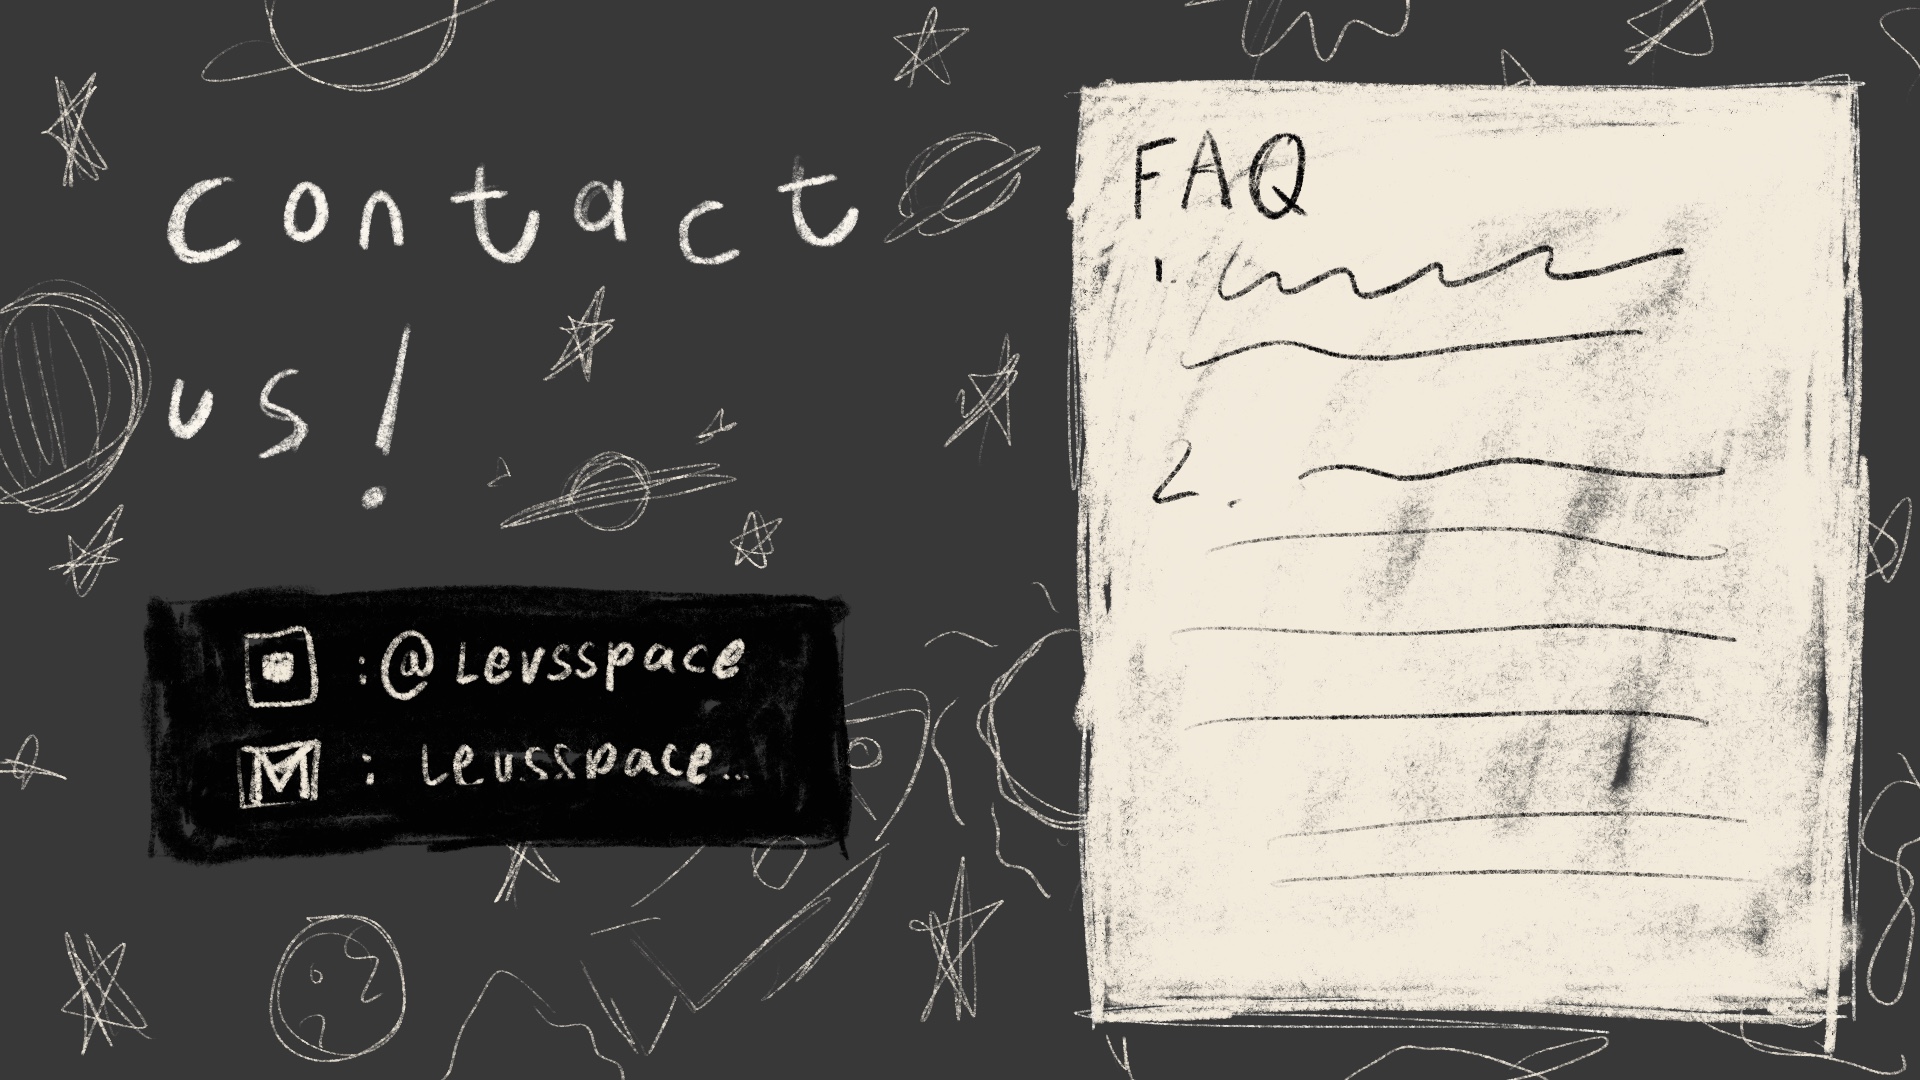 contact
us!
: @Levsspace
: Levsspace...
FAQ
1.
2.